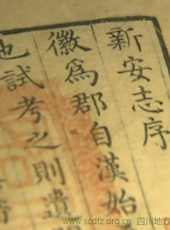 新安志序
徽為郡自漢始
也試考之則遺
www.scdfz.org.cn 四川地方